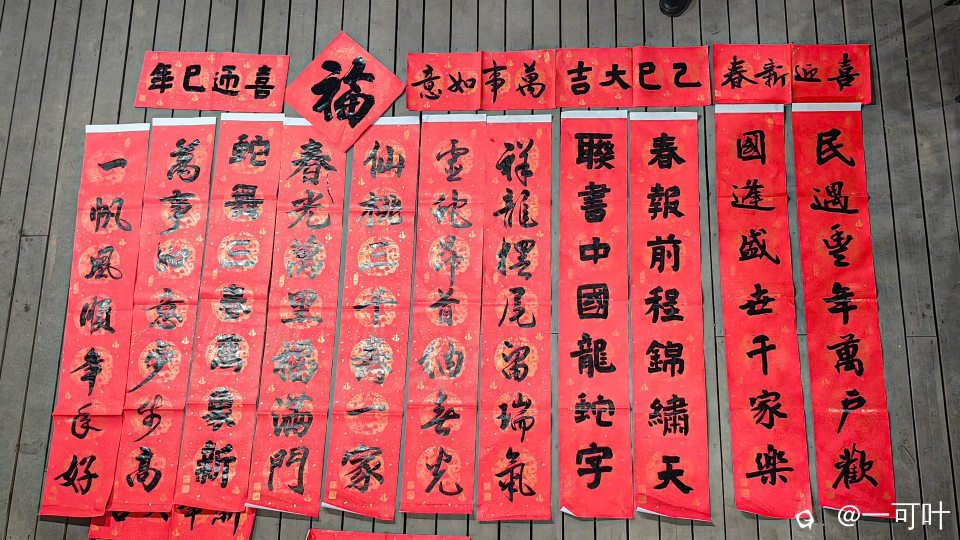 喜迎新春
乙巳大吉
萬事如意
福
喜迎巳年
民遇豐年萬戶歡
國逢盛世千家樂
春報前程錦繡天
聯書中國龍蛇字
祥龍擺尾留瑞氣
靈蛇昂首納春光
仙桃三千壽一家
春光萬里福滿門
蛇舞三春萬象新
萬事如意步步高
一帆風順年年好
@一可叶